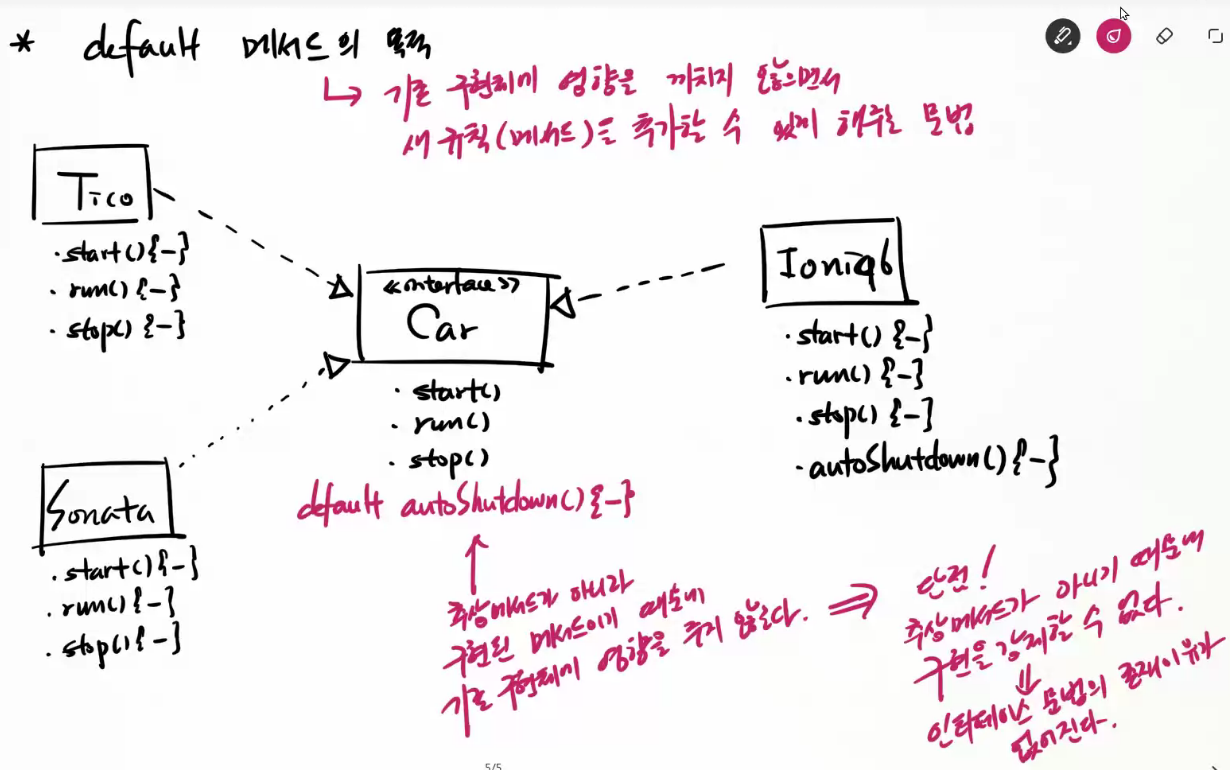 * default 메서드의 목적
↳ 기존 구현체에 영향을 끼치지 않으면서
새 규칙(메서드)을 추가할 수 있게 해주는 문법
Tico
· start(){-}
· run(){-}
· stop(){-}
<<interface>>
Car
· start()
· run()
· stop()
default autoShutdown(){-}
Ioniq6
· start(){-}
· run(){-}
· stop(){-}
· autoShutdown(){-}
Sonata
· start(){-}
· run(){-}
· stop(){-}
추상메서드가 아니라
구현된 메서드이기 때문에
기존 구현체에 영향을 주지 않는다.
단점!
추상메서드가 아니기 때문에
구현을 강제할 수 없다.
인터페이스 문법의 존재이유가
없어진다.
5/5